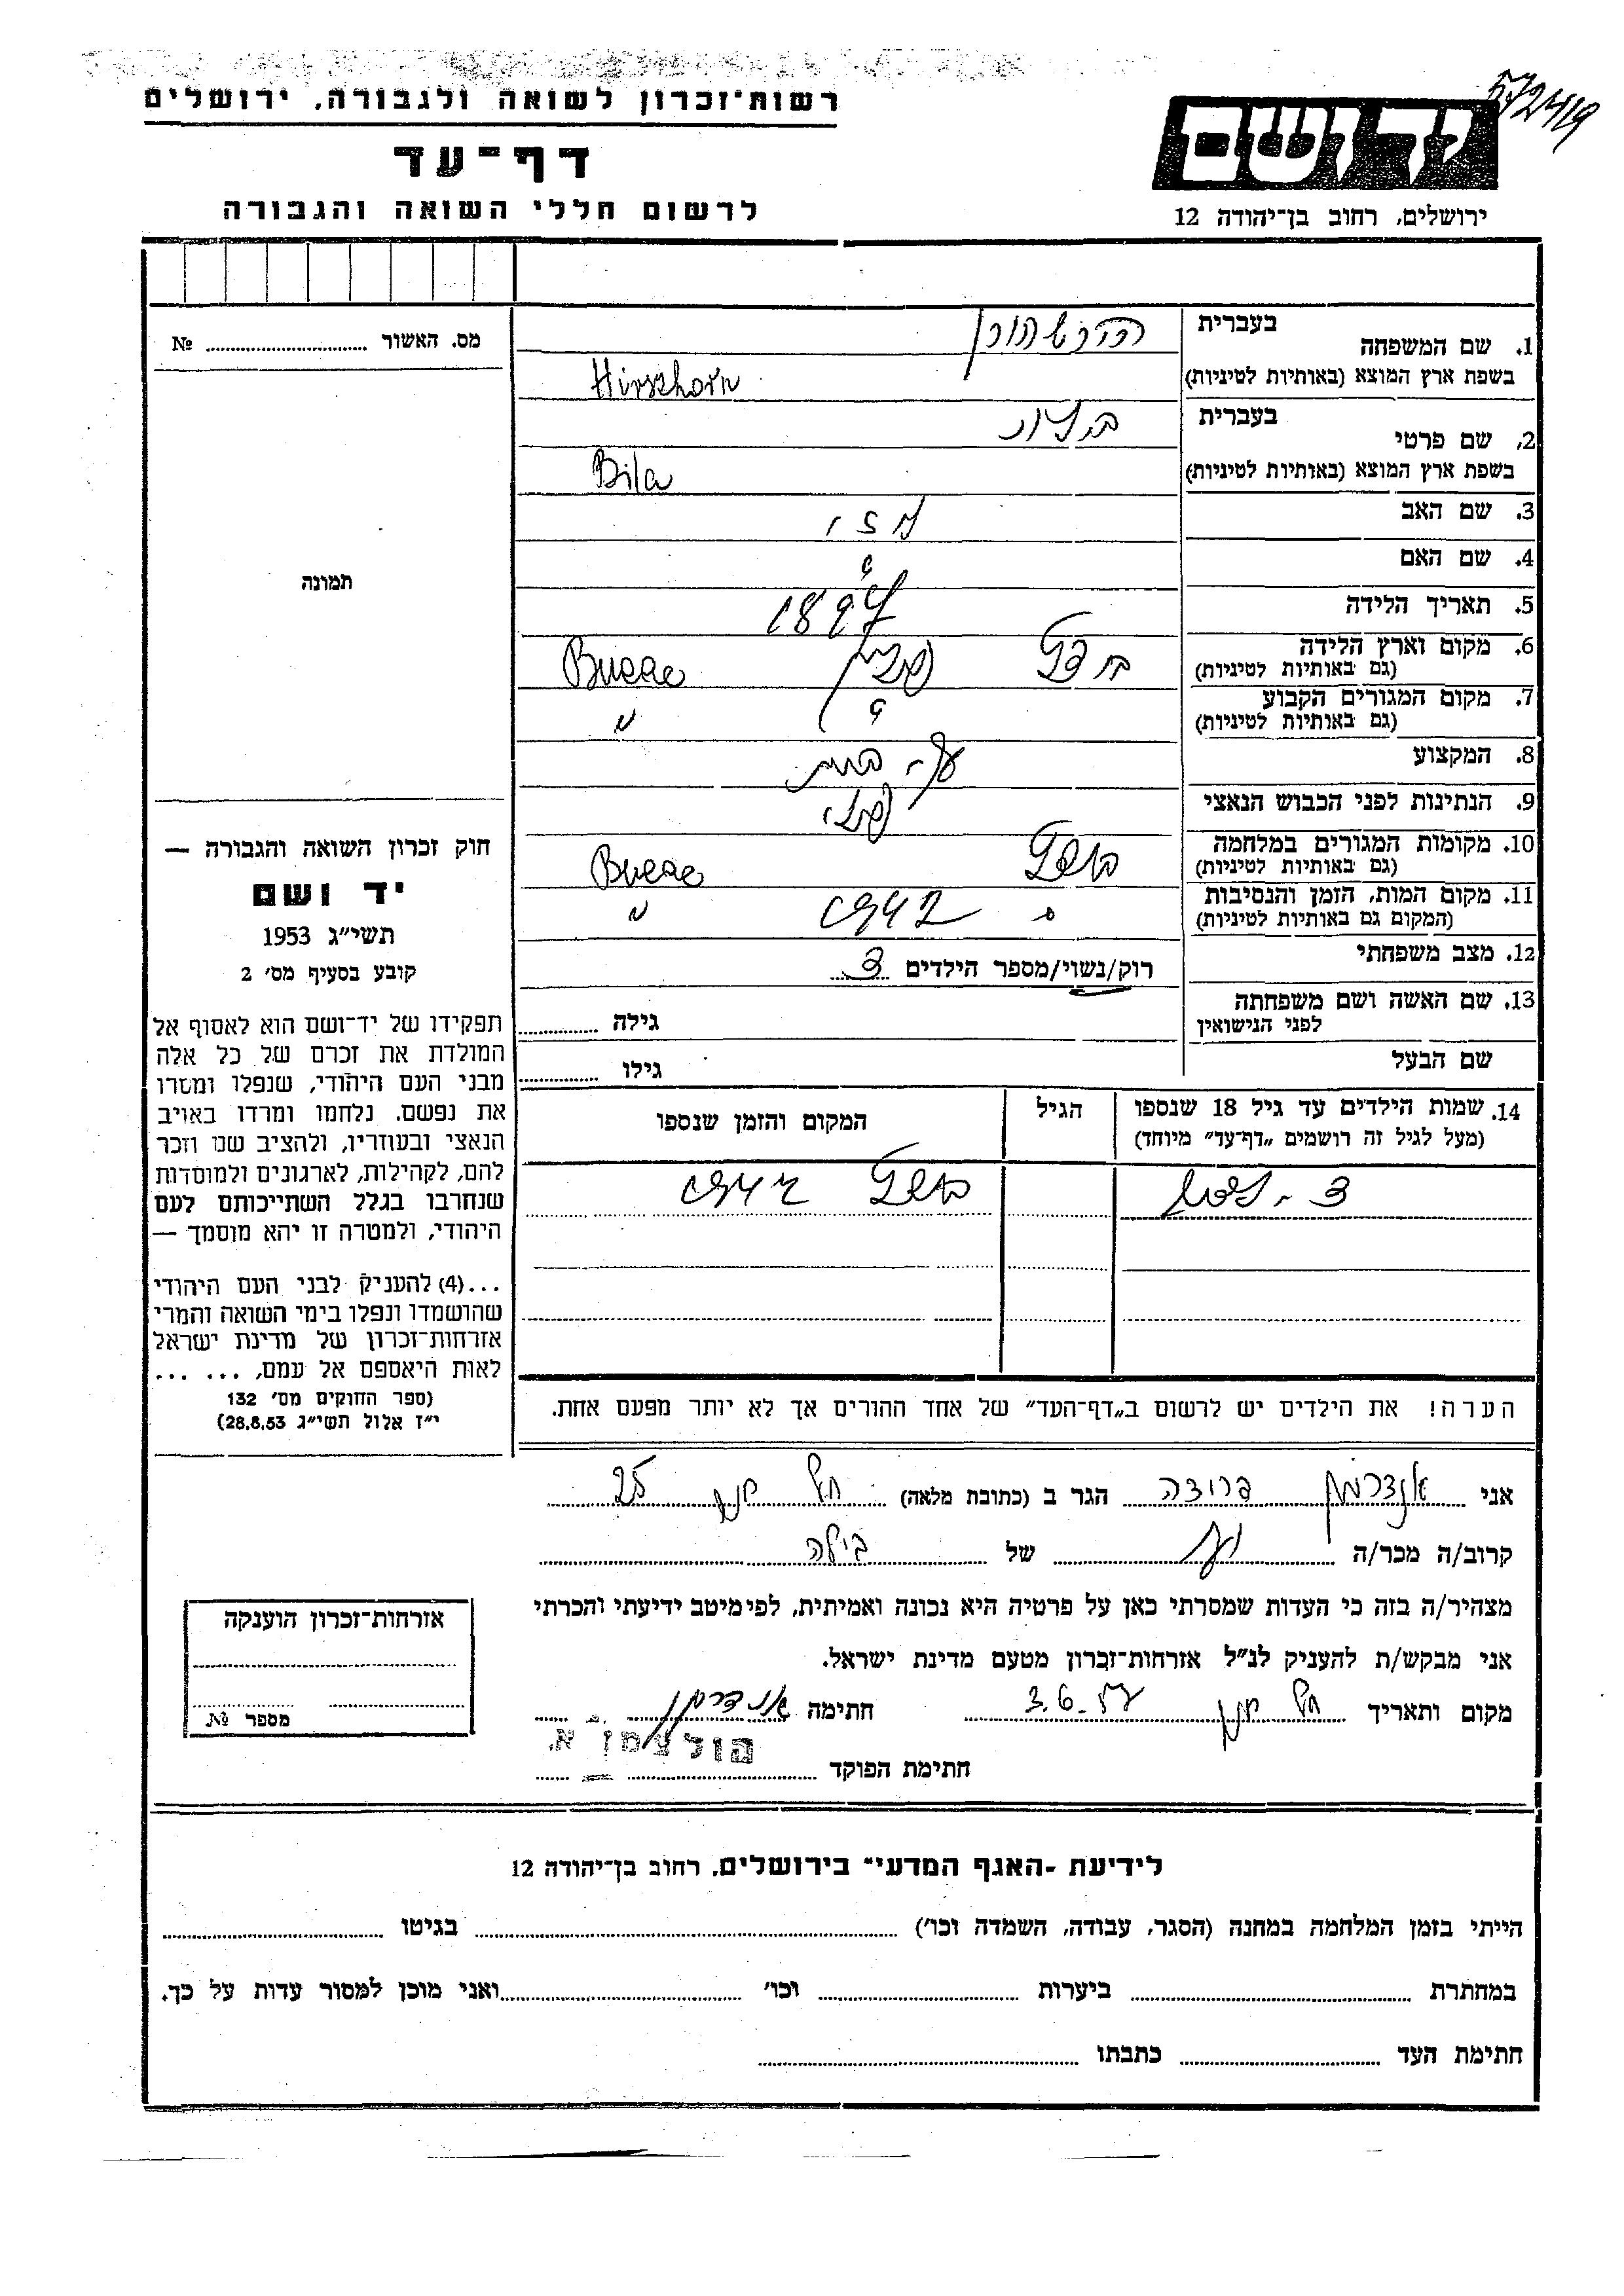 רשות־זכרון לשואה ולגבורה, ירושלים
דף־עד
לרשום חללי השואה והגבורה
ירושלים, רחוב בן־יהודה 12
1. שם המשפחה
בעברית
הירשהורן
בשפת ארץ המוצא (באותיות לטיניות)
Hirszhorn
2. שם פרטי
בעברית
בשפת ארץ המוצא (באותיות לטיניות)
Bila
3. שם האב
4. שם האם
?
5. תאריך הלידה
1897
6. מקום וארץ הלידה
(גם באותיות לטיניות)
פולין
7. מקום המגורים הקבוע
(גם באותיות לטיניות)
?
"
8. המקצוע
9. הנתינות לפני הכבוש הנאצי
10. מקומות המגורים במלחמה
(גם באותיות לטיניות)
11. מקום המות, הזמן והנסיבות
(המקום גם באותיות לטיניות)
1942
"
12. מצב משפחתי
רוק/נשוי/מספר הילדים 3
13. שם האשה ושם משפחתה
לפני הנישואין
גילה
שם הבעל
גילו
14. שמות הילדים עד גיל 18 שנספו
(מעל לגיל זה רושמים „דף־עד" מיוחד)
הגיל
המקום והזמן שנספו
הערה! את הילדים יש לרשום ב„דף־העד" של אחד ההורים אך לא יותר מפעם אחת.
מס. האשור № 
תמונה
חוק זכרון השואה והגבורה —
יד ושם
תשי״ג 1953
קובע בסעיף מס׳ 2
תפקידו של יד־ושם הוא לאסוף אל
המולדת את זכרם של כל אלה
מבני העם היהודי, שנפלו ומסרו
את נפשם. נלחמו ומרדו באויב
הנאצי ובעוזריו, ולהציב שם וזכר
להם, לקהילות, לארגונים ולמוסדות
שנחרבו בגלל השתייכותם לעם
היהודי, ולמטרה זו יהא מוסמך —
...(4) להעניק לבני העם היהודי
שהושמדו ונפלו בימי השואה והמרי
אזרחות־זכרון של מדינת ישראל
לאות היאספם אל עמם, ... ...
(ספר החוקים מס׳ 132
י״ז אלול תשי״ג 28.8.53)
אני פרוצה הגר ב (כתובת מלאה) 25
קרוב/ה מכר/ה של בילה
מצהיר/ה בזה כי העדות שמסרתי כאן על פרטיה היא נכונה ואמיתית, לפי מיטב ידיעתי והכרתי
אני מבקש/ת להעניק לנ״ל אזרחות־זכרון מטעם מדינת ישראל.
מקום ותאריך 3.6. חתימה
חתימת הפוקד הולצמן א.
אזרחות־זכרון הוענקה
מספר №
לידיעת -האגף המדעי" בירושלים, רחוב בן־יהודה 12
הייתי בזמן המלחמה במחנה (הסגר, עבודה, השמדה וכו׳) בגיטו
במחתרת ביערות וכו׳ ואני מוכן למסור עדות על כך.
חתימת העד כתבתו